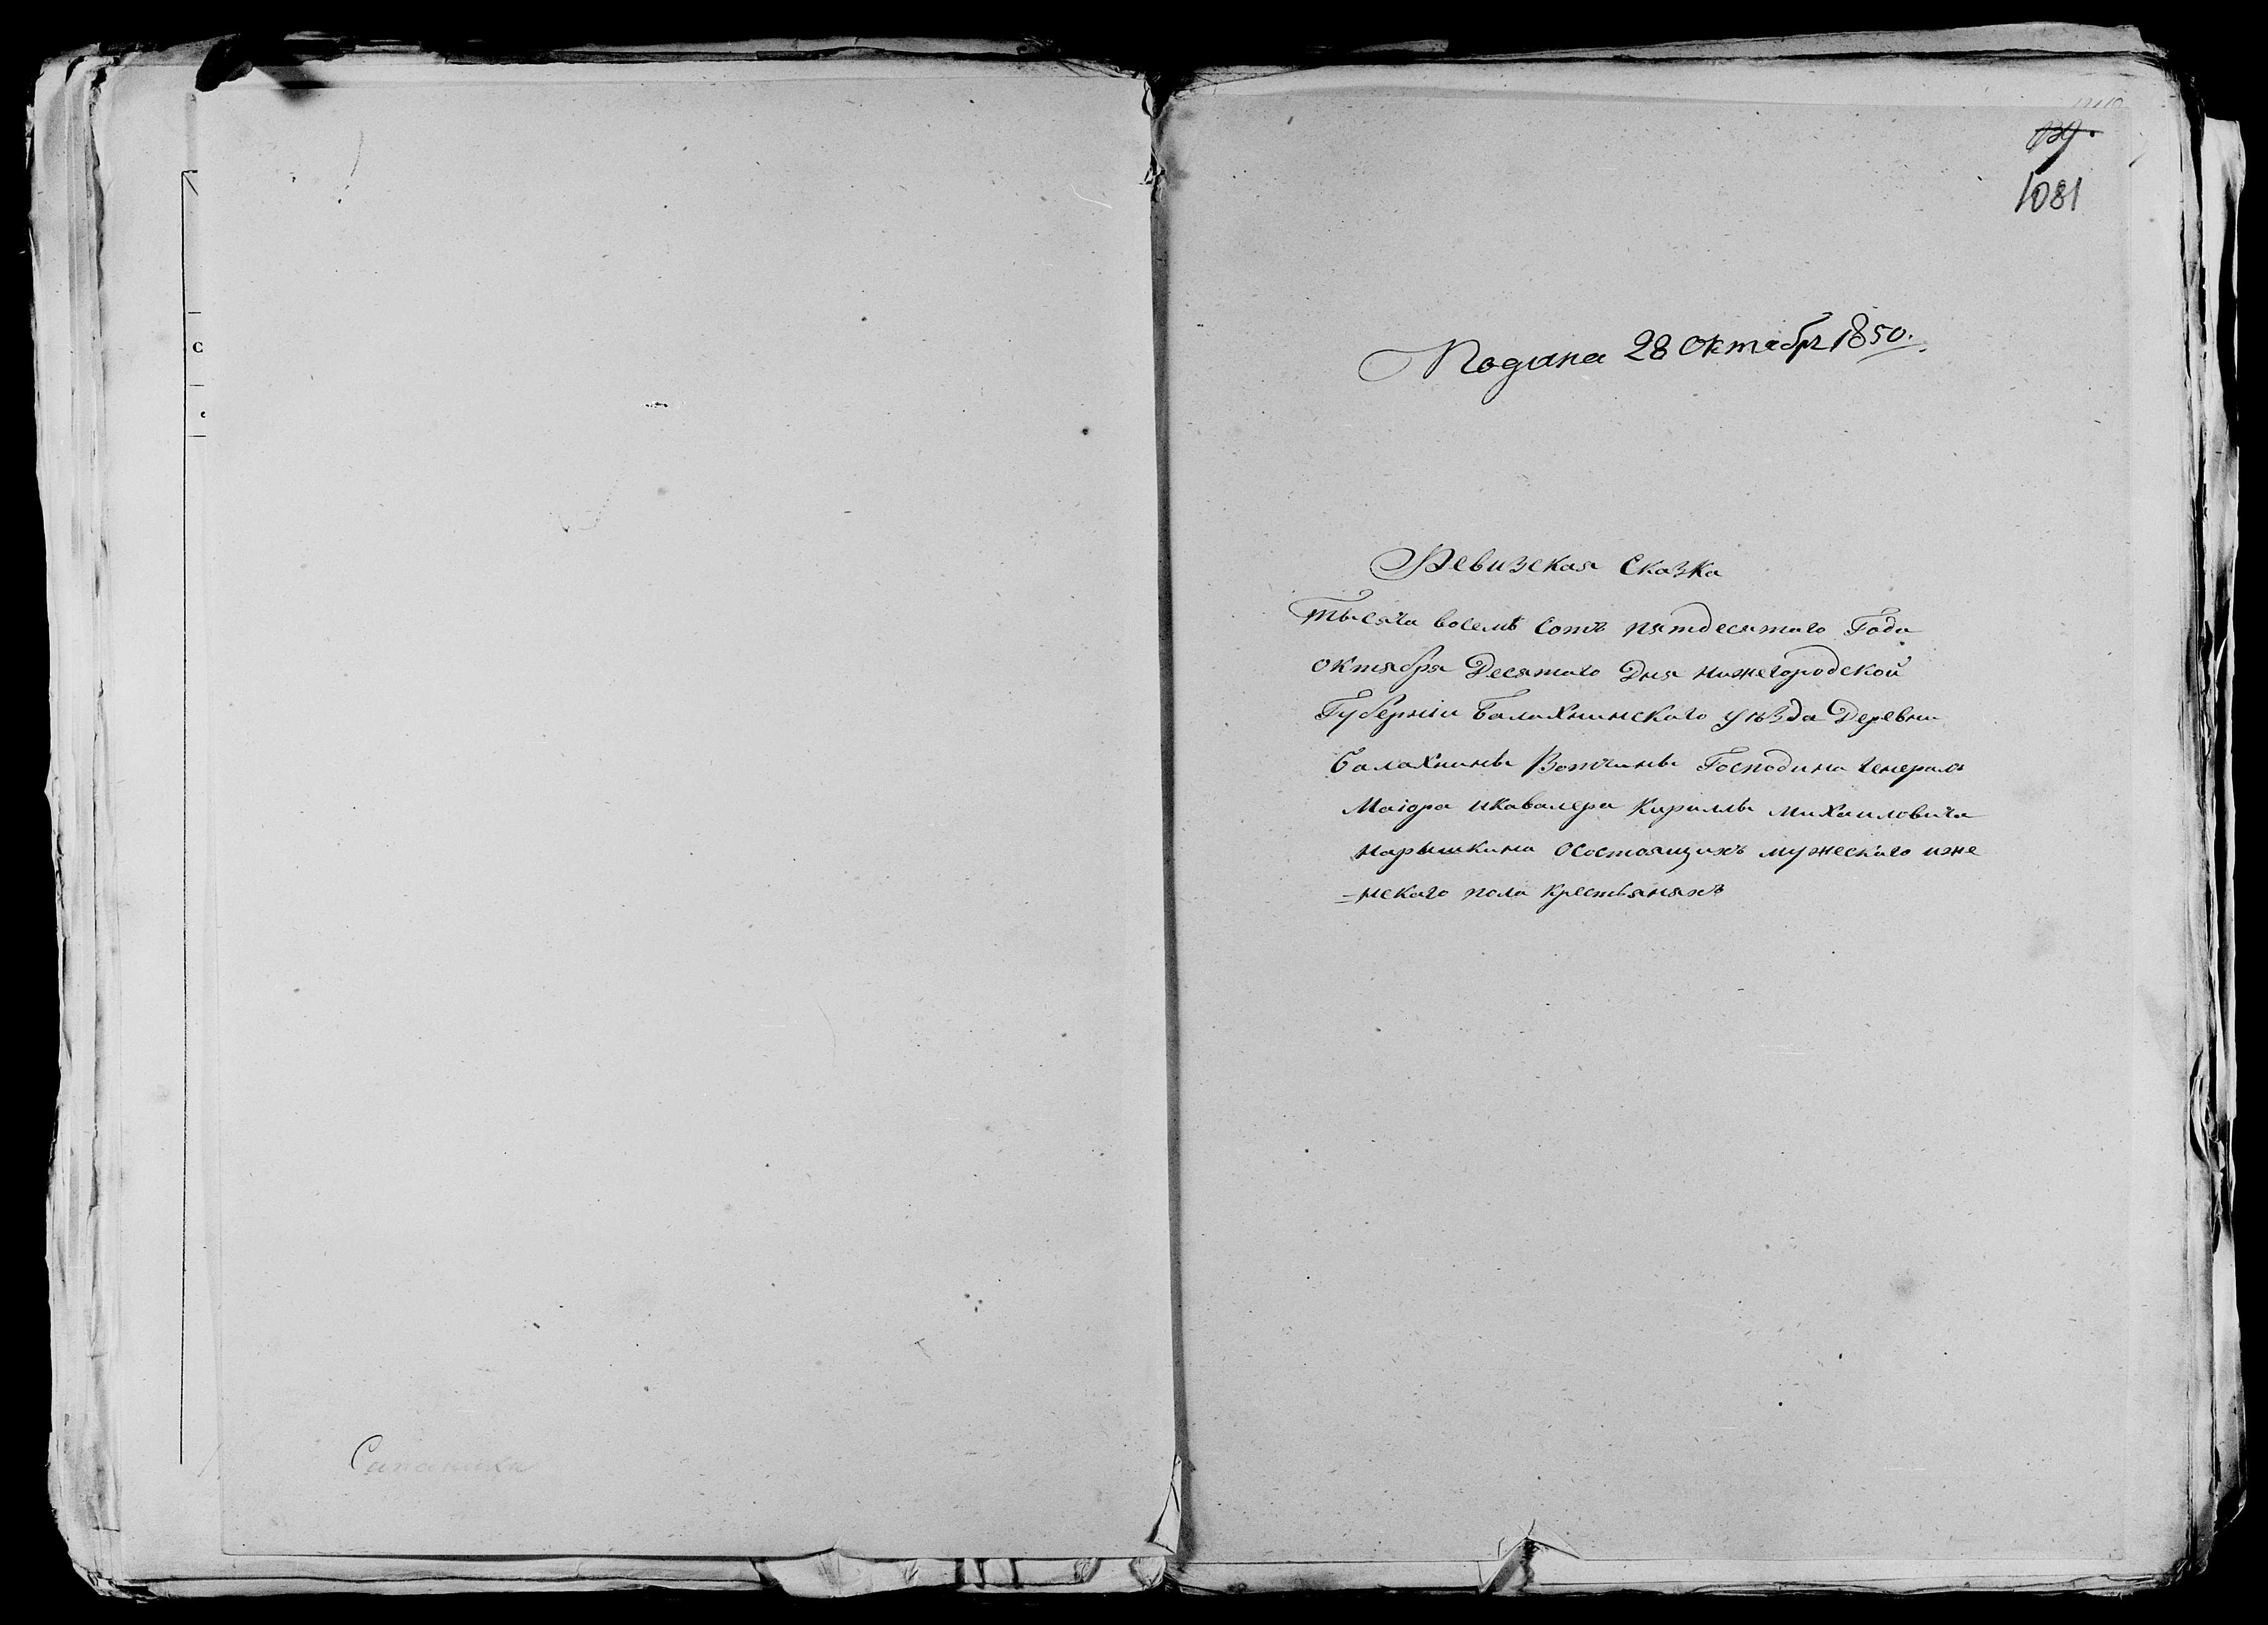 1081
Подана 28 Октябр 1850.
Ревизская Сказка
тысяча восемь Сотъ пятдесятаго Года
октября Десятаго Дня нижегородской
Губерніи Балахнинскаго уѣзда Деревни
Балахнины Вотчины Господина генералъ
Маіора икавалера Кириллы михаиловича
нарышкина осостоящихъ мужескаго иже
-нскаго пола крестьянахъ